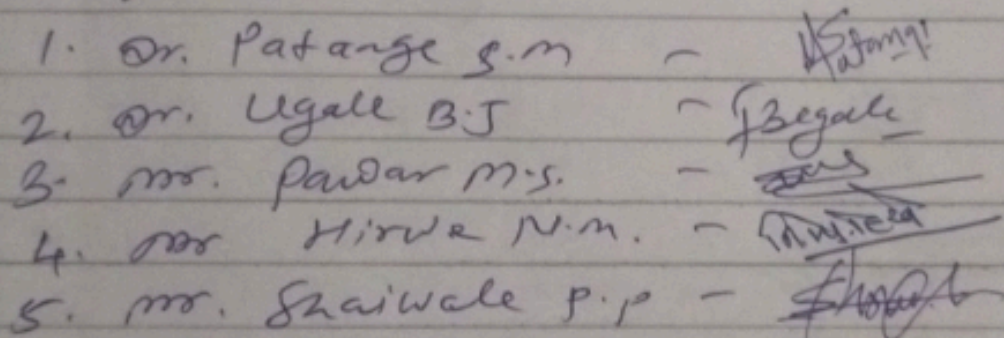 1. Dr. Patange S.M -
2. Dr. Ugale B.J -
3. Mr. Pawar M.S. -
4. Mr Hirwe N.M. -
5. Mr. Shaiwale P.P -